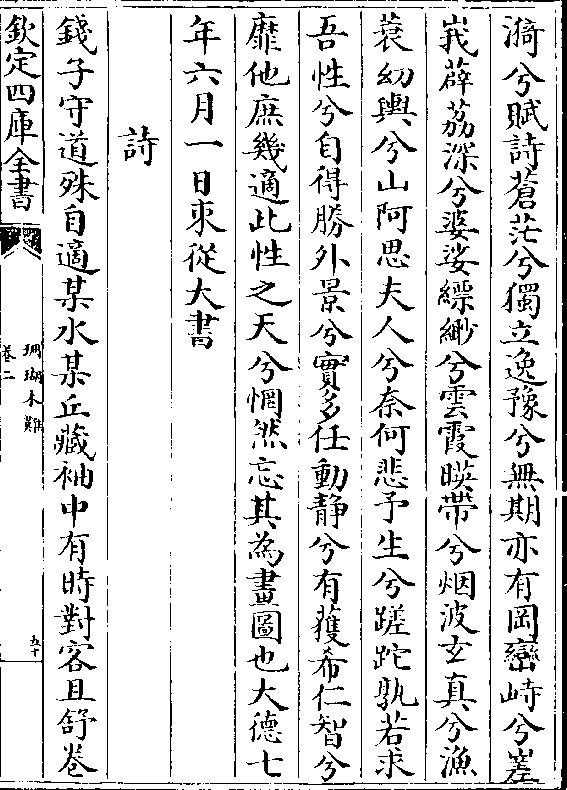 漪兮賦詩蒼茫兮獨立逸豫兮無期亦有岡巒峙兮嵳
峩薜荔深兮婆娑縹緲兮雲霞暎帶兮烟波玄真兮漁
蓑幼輿兮山阿思夫人兮奈何悲予生兮蹉跎孰若求
吾性兮自得勝外景兮實多任動靜兮有獲希仁智兮
靡他庶幾適此性之天兮惘然忘其為畫圖也大德七
年六月一日東從大書
詩
錢子守道殊自適某水某丘藏袖中有時對客且舒卷
欽定四庫全書
珊瑚木難
卷二
五十